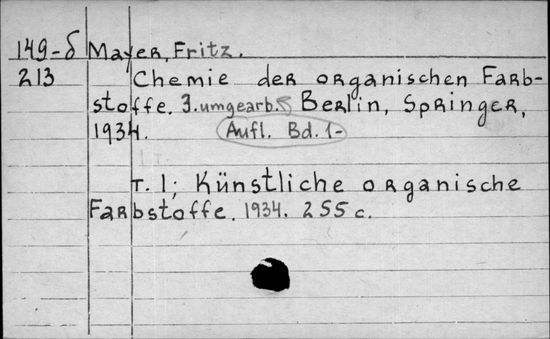 149-δ Mayer, Fritz.
213 Chemie der organischen Farb-
stoffe. 3. umgearb. Berlin, Springer,
1934. Aufl. Bd. 1-
т. 1; Künstliche organische
Farbstoffe. 1934. 255 c.